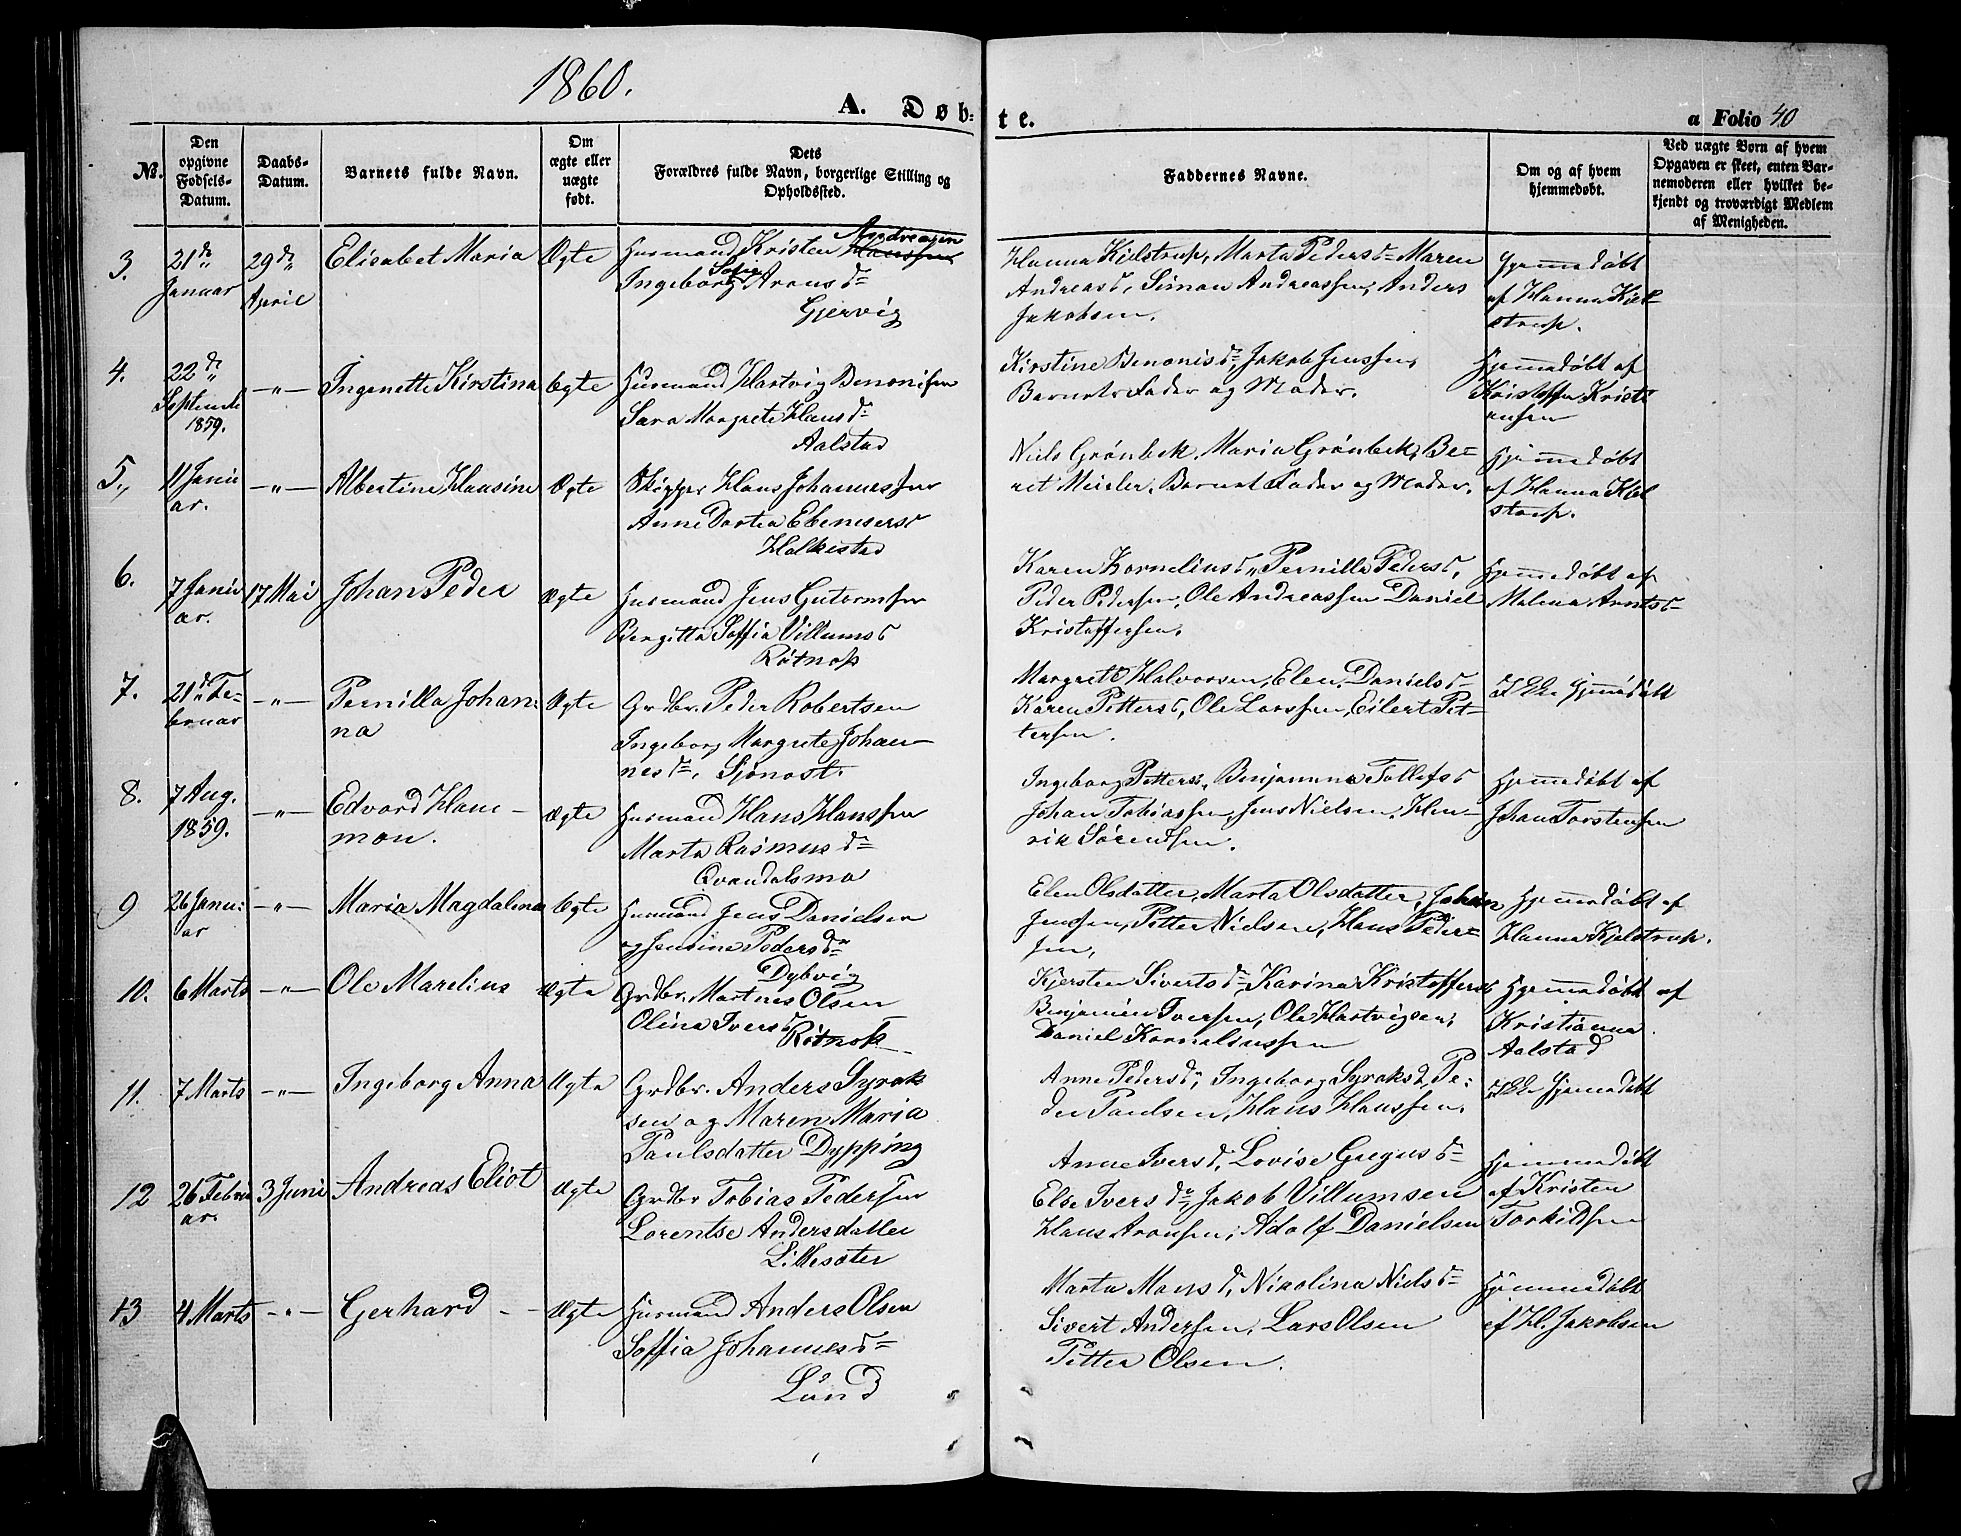 1860.
A. Døb-
te.
a Folio 40
No.
Den opgivne Fødsels-Datum.
Daabs-Datum.
Barnets fulde Navn.
Om ægte eller uægte født.
Dets Forældres fulde Navn, borgerlige Stilling og Opholdssted.
Faddernes Navne.
Om og af hvem hjemmedøbt.
Ved uægte Børn af hvem Opgaven er skeet, enten Barnemoderen eller hvilket bekjendt og troværdigt Medlem af Menigheden.
3. 21de Januar 29de April Elisabet Maria Ægte
Husmand Kristen Hanssen Andreasen
Ingeborg Sofie Aronsd.
Gjervig
Hanna Kjelstrup, Marta Pedersd. Maren
Andreasd, Simon Andreassen, Anders
Jakobsen.
Hjemmedøbt
af Hanna Kjel-
strup.
4. 22de September 1859. -"- Ingenette Kirstina Ægte
Husmand Hartvig Benonisen
Sara Margrete Hansd.
Aalstad
Kirstine Benonisd. Jakob Jenssen,
Barnets Fader og Moder.
Hjemmedøbt af
Kristoffer Kristi
ansen
5., 11 Janu ar. -"- Albertine Hansine Ægte
Skipper Hans Johannessen
Anne Dortea Ebenesersd
Halkestad
Niels Grønbek, Maria Grønbek, Be-
rit Meisler, Barnets Fader og Moder.
Hjemmedøbt
af Hanna Kjel
strup.
6. 7 Janu ar. 17 Mai Johan Peder Ægte
Husmand Jens Gutormsen
Bergitta Soffia Villumsd
Røtnæs
Karen Kornelius d, Pernilla Pedersd,
Peder Pedersen, Ole Andreassen Daniel
Kristoffersen.
Hjemmedøbt af
Malena Arntsd-
7. 21de Fe-bruar -"- Pernilla Johan-
na Ægte
Grdbr. Peder Robertsen
Ingeborg Margrete Johan-
nesd., Sjonost.
Margrete Halvorsen, Elen Danielsd-
Karen Pettersd, Ole Larssen, Eilert Pet-
tersen.
Ikke Hjemmedøbt
8. 7 Aug. 1859. -"- Edvard Han-
mon. Ægte
Husmand Hans Hanssen
Marta Rasmusd.
Qvandalsmo
Ingeborg Pettersd, Benjamine Tollefsd
Johan Tobiassen, Jens Nielsen, Hen-
rik Sørentsen.
Hjemmedøbt af
Johan Torstensen
9 26 Janu-ar -"- Maria Magdalena Ægte
Husmand Jens Danielsen
og Jensine Pedersdr
Dybvig
Elen Olsdatter, Marta Olsdatter, Johan
Jenssen, Petter Nielsen, Hans Peder-
sen,
Hjemmedøbt af
Hanna Kjelstrup.
10. 6 Marts -"- Ole Marelius Ægte
Grdbr. Martnes Olsen
Olina Iversd
Røtnæs
Kjersten Sivertsd. Karina Kristoffersd
Benjamin Iversen, Ole Hartvigsen,
Daniel Korneliussen
Hjemmedøbt af
Kristianna
Aalstad
11. 7 Marts -"- Ingeborg Anna Ægte
Grdbr. Anders Syrak
sen og Maren Maria
Paulsdatter Dypping
Anne Pedersd, Ingeborg Syraksd, Pe-
der Paulsen, Hans Hanssen.
Ikke Hjemmedøbt
12 26 Febru ar. 3 Juni Andreas Eliot Ægte
Grdbr Tobias Pedersen
Lorentse Andersdatter
Lillesæter
Anne Iversd, Lovise Gregusd-
Else Iversdr, Jakob Villumsen
Hans Aronsen, Adolf Danielsen
Hjemmedøbt
af Kristen
Torkildsen
13 4 Marts -"- Gerhard - - Ægte
Husmand Anders Olsen
Soffia Johannesd-
Lund
Marta Mons d, Nikolina Nielsd-
Sivert Andersen, Lars Olsen
Petter Olsen.
Hjemmedøbt
af H. Jakobsen